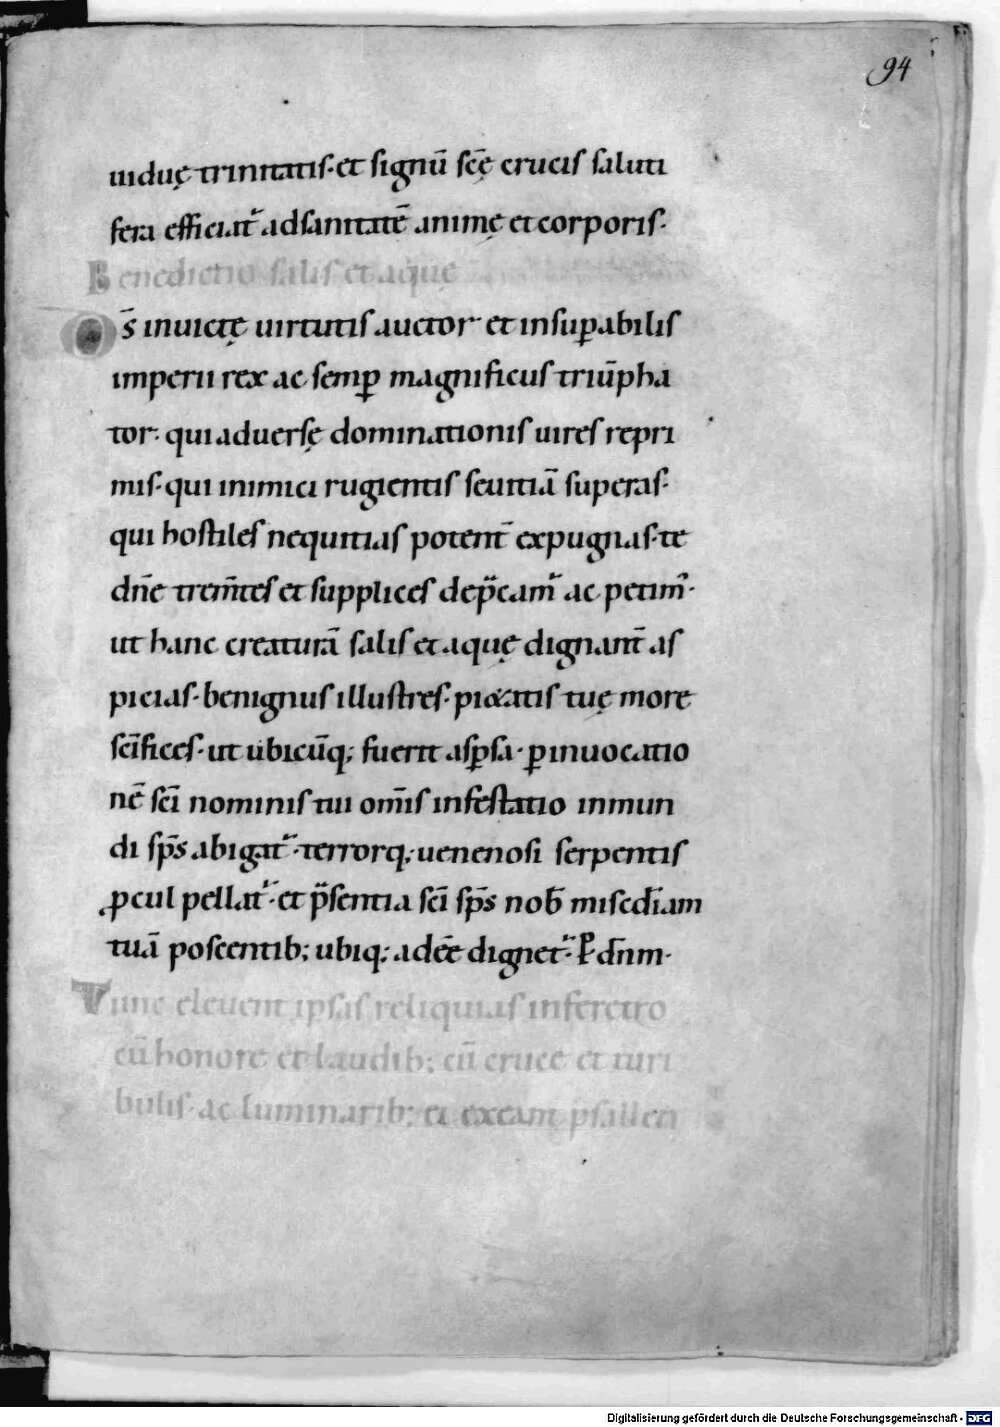 94
uiduę trinitatis· et signū scę̄ crucis saluti
fera efficiat᷑ ad sanitatē animę et corporis·
Benedictio salis et aquę
Os̄ inuictę uirtutis auctor et insuꝑabilis
imperii rex ac semꝑ magnificus triūpha
tor· qui aduersę dominationis uires repri
mis· qui inimici rugientis seuitiā superas·
qui hostiles nequitias potent̄ expugnas· te
dn̄e trem̄tes et supplices dep̄cam᷑ ac petim᷑·
ut hanc creaturā salis et aquę dignant̄ as
picias· benignus illustres· pi&atis tuę more
sc̄ifices· ut ubicūq; fuerit asꝑsa· ꝑ inuocatio
nē sc̄i nominis tui om̄is infestatio inmun
di sp̄s abigat᷑· terrorq; uenenosi serpentis
ꝓcul pellat᷑· et p̄sentia sc̄i sp̄s nob̄ misēdiam
tuā poscentib; ubiq; adeē dignet᷑· P̄ dn̄m·
Tunc eleuent ipsas reliquias in feretro
cū honore et laudib; cū cruce et turi
bulis· ac luminarib; et exeant psallen
Digitalisierung gefördert durch die Deutsche Forschungsgemeinschaft - DFG